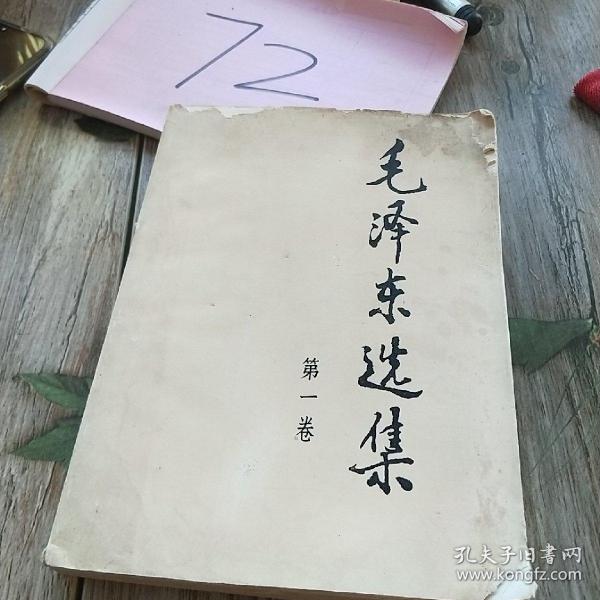 72
毛泽东选集
第一卷
孔夫子旧书网
www.kongfz.com